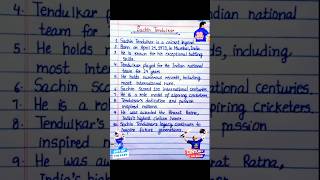 Sachin Tendulkar
1. Sachin Tendulkar is a cricket legend.
2. Born on April 24, 1973, in Mumbai, India.
3. He is known for his exceptional batting
skills.
4. Tendulkar played for the Indian national
team for 24 years.
5. He holds numerous records, including
most international runs.
6. Sachin scored 100 international centuries.
7. He is a role model of aspiring cricketers.
8. Tendulkar's dedication and passion
inspired millions.
9. He was awarded the Bharat Ratna,
India's highest civilian honor.
10. Sachin Tendulkar's legacy continues to
inspire future generations.
4. Tendul
team f
5. He holds
most Inter
6. Sachin s
7. He is a
8. Tendulkar's
inspired m
9. He was a
India's high
n national
including
centuries.
cricketers.
passion
Ratna,